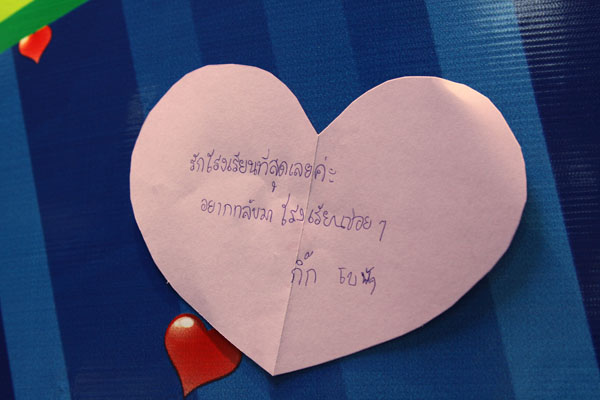 รักโรงเรียนที่สุดเลยค่ะ
อยากกลับมา โรงเรียนบ่อย ๆ
กิ๊ก